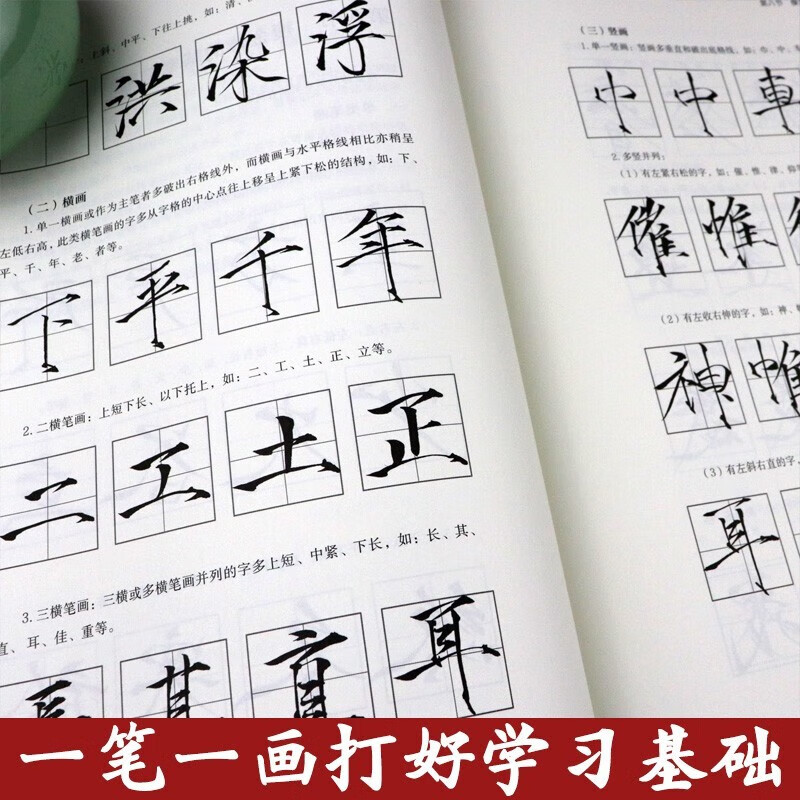 上斜、中平、下往上挑，如：清、
洪 染 浮
（二）横画
1.单一横画或作为主笔者多破出右格线外，而横画与水平格线相比亦稍呈
左低右高，此类横笔画的字多从字格的中心点往上移呈上紧下松的结构，如：下、
平、千、年、老、者等。
下 平 千 年
2.二横笔画：上短下长、以下托上，如：二、工、土、正、立等。
二 工 土 正
3.三横笔画：三横或多横笔画并列的字多上短、中紧、下长，如：长、其、
直、耳、佳、重等。
其 直 耳
（三）竖画
1.单一竖画：竖画多垂直和破出底格线，如：巾、中、
中 中 車
2.多竖并列：
（1）有左紧右松的字，如：催、惟、律、仰等
催 惟
（2）有左收右伸的字，如：神、
神 惟
（3）有左斜右直的字，
耳
一笔一画打好学习基础